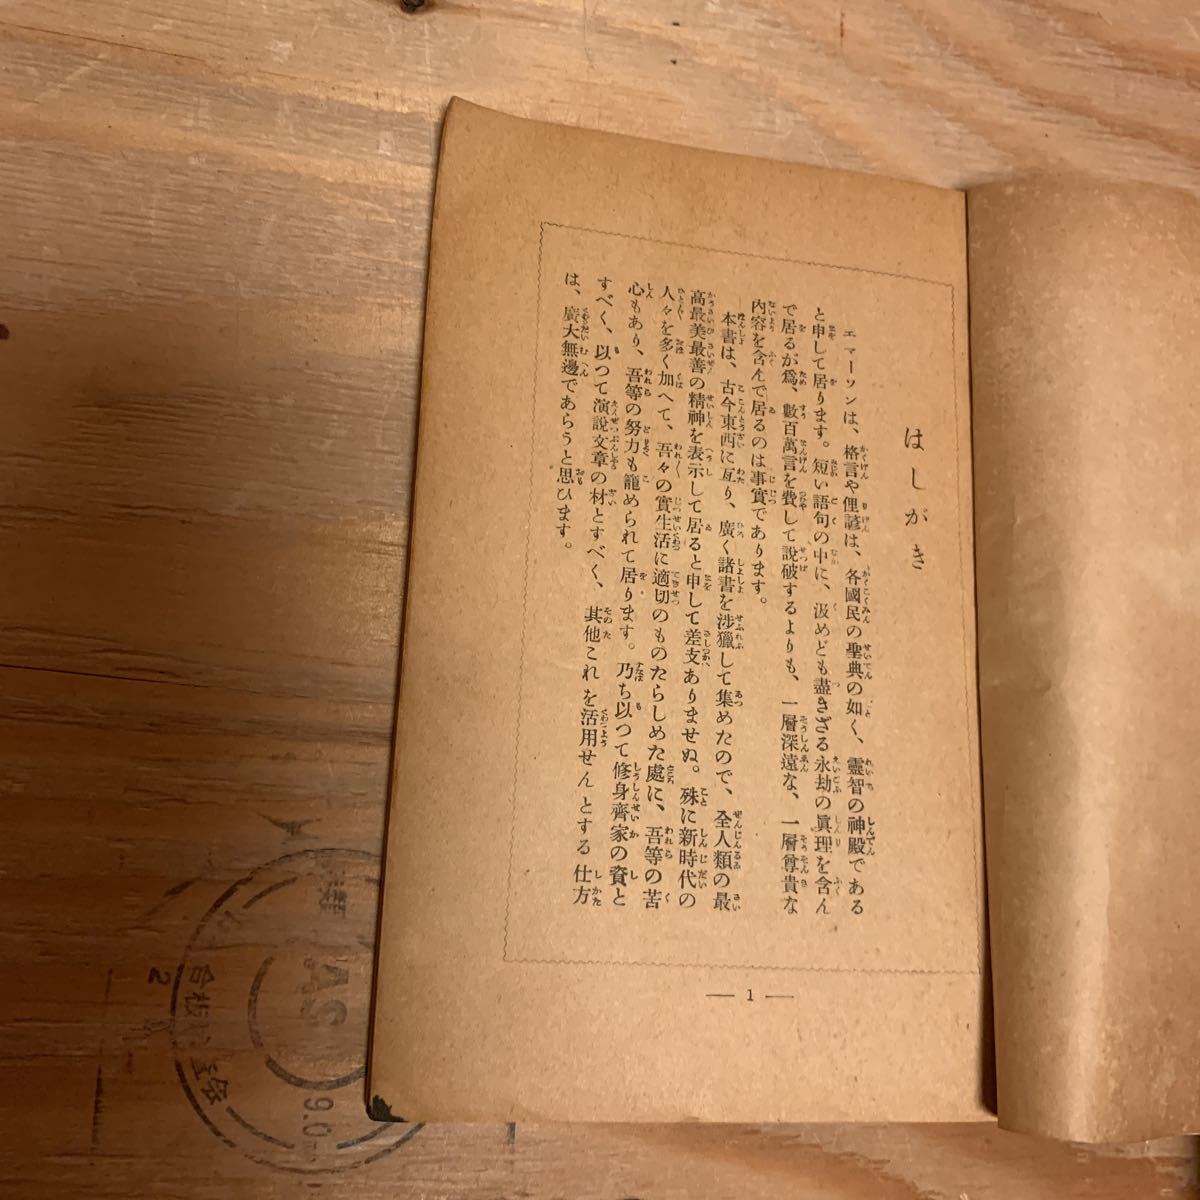 はしがき
エマーソンは、格言や俚諺は、各國民の聖典の如く、靈智の神殿である
と申して居ります。短い語句の中に、汲めども盡きざる永劫の眞理を含ん
で居るが爲、數百萬言を費して說破するよりも、一層深遠な、一層尊貴な
內容を含んで居るのは事實であります。
本書は、古今東西に亙り、廣く諸書を涉獵して集めたので、全人類の最
高最美最善の精神を表示して居ると申して差支ありませぬ。殊に新時代の
人々を多く加へて、吾々の實生活に適切のものたらしめた處に、吾等の苦
心もあり、吾等の努力も籠められて居ります。乃ち以つて修身齊家の資と
すべく、以つて演說文章の材とすべく、其他これを活用せんとする仕方
は、廣大無邊であらうと思ひます。
— 1 —
AS
2
9.0